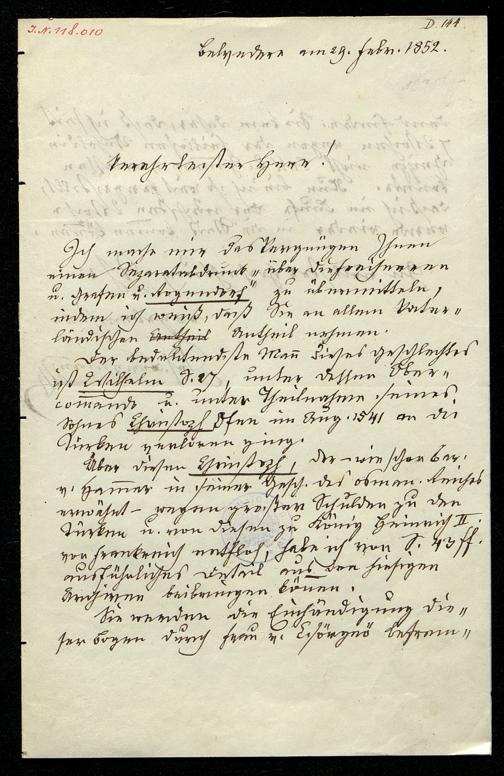 I.N. 118.010
D. 144
Belvedere am 29. Febr. 1852.
Verehrtester Herr!
Ich mache mir das Vergnügen Ihnen
einen Separatabdruck „über die Freiherren
u. Grafen v. Rogendorf“ zu übermitteln,
indem ich weiß, daß Sie an allem Vater-
ländischen Antheil Antheil nehmen.
Der bedeutendste Mañ dieses Geschlechtes
ist Wilhelm S. 27, unter dessen Ober-
comando u. unter Theilnahme seines
Sohnes Christoph Ofen im Aug. 1541 an die
Türken verloren ging.
Über diesen Christoph, der – wie schon Bar.
v. Hammer in seiner Gesch. des osman. Reiches
erwähnt – wegen großer Schulden zu den
Türken u. von diesen zu König Heinrich II.
von Frankreich entfloh, habe ich von S. 43 ff.
ausführliches Detail aus den hiesigen
Archiven beibringen köñen.
Sie werden die Einhändigung die-
ser Bogen durch Frau v. befrem-